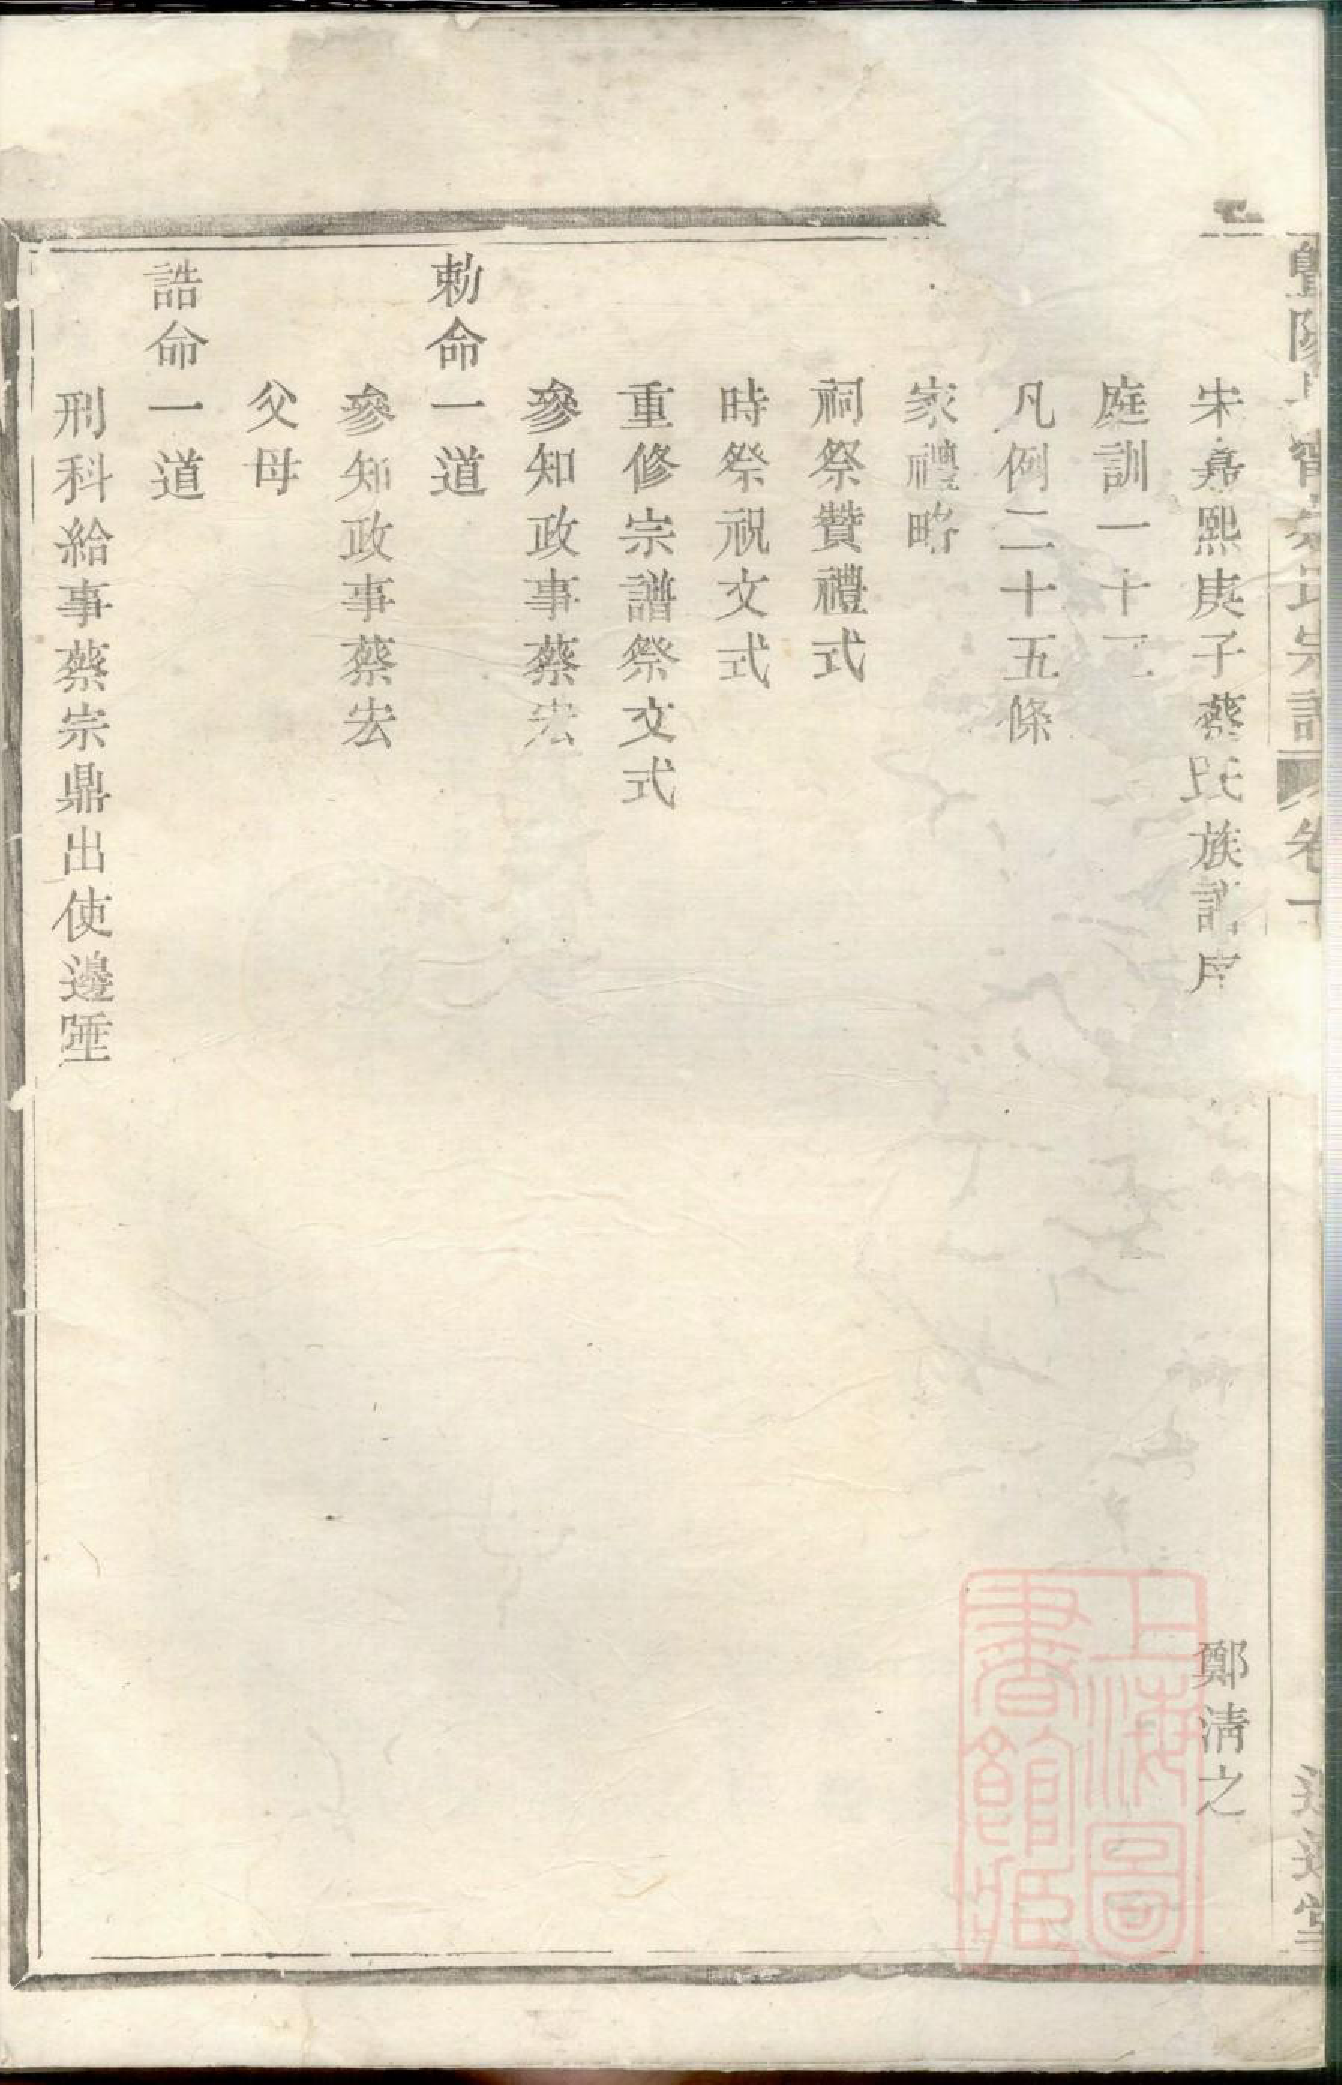 宋嘉熙庚子蔡氏族譜序 鄭清之
庭訓一十二
凡例二十五條
家禮略
祠祭贊禮式
時祭祝文式
重修宗譜祭文式
參知政事蔡宏
勅命一道
參知政事蔡宏
父母
誥命一道
刑科給事蔡宗鼎出使邊陲
上海圖
書館藏